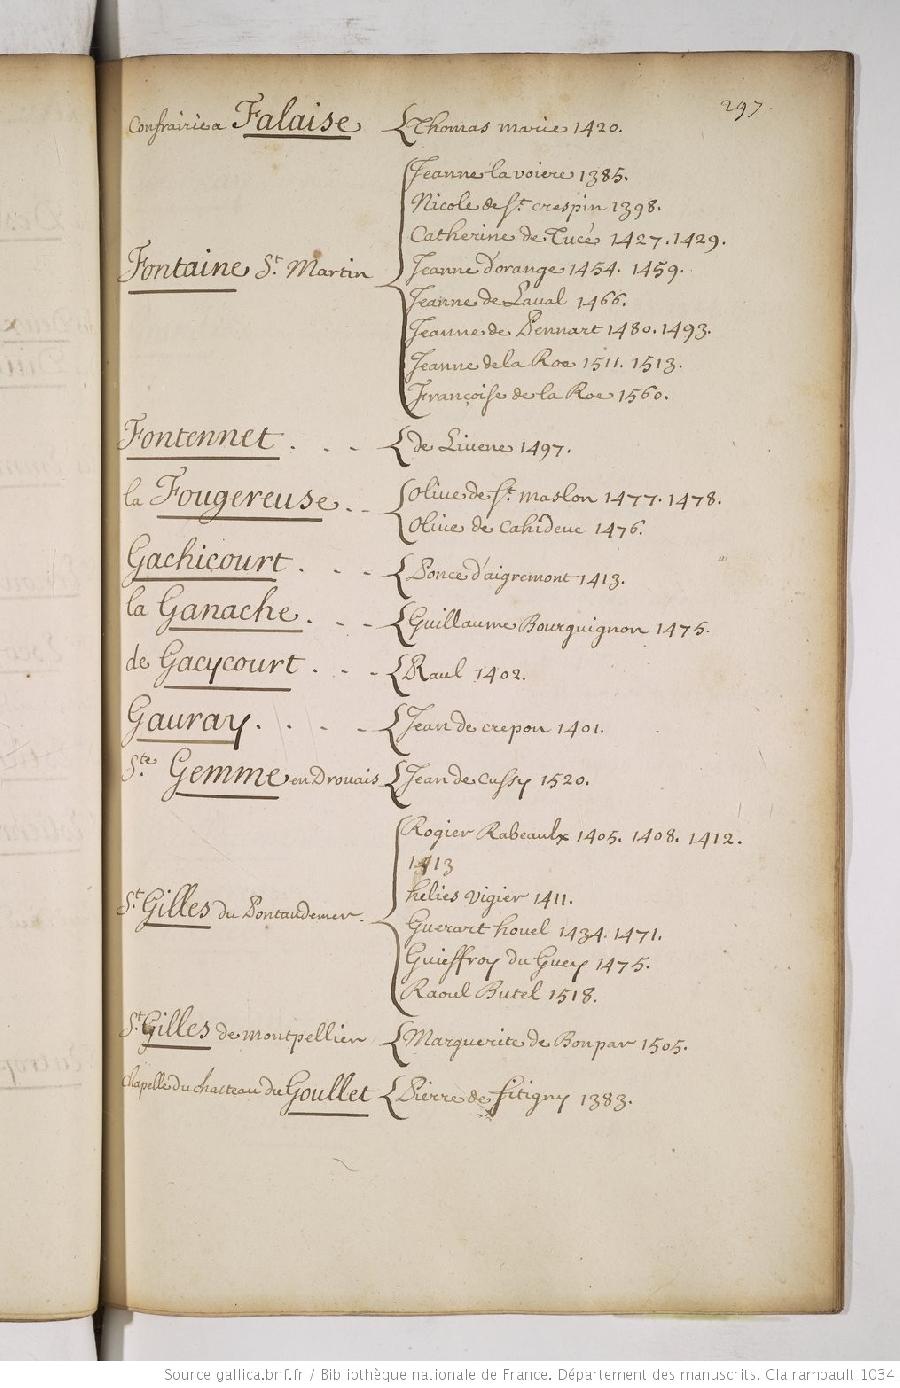 297.
Confrairie a Falaise { Thomas marie 1420.
Jeanne la voiere 1385.
Nicole de St. crespin 1398.
Catherine de Tucé 1427. 1429.
Fontaine St. Martin { Jeanne d'orange 1454. 1459.
Jeanne de Laval 1466.
Jeanne de Pennart 1480. 1493.
Jeanne de la Roe 1511. 1513.
Françoise de la Roe 1560.
Fontennet . . . { de Livene 1497.
la Fougereuse . . { Olive de St. maslon 1477. 1478.
Olive de cahideuc 1476.
Gachicourt . . . { Ponce d'aigremont 1413.
la Ganache . . . { Guillaume Bourguignon 1475.
de Gacycourt . . . { Raul 1402.
Gauray . . . . { Jean de crepon 1401.
Ste. Gemme en Drouais { Jean de Cussy 1520.
Rogier Rabeaulx 1405. 1408. 1412.
1413
helies vigier 1411.
St. Gilles du Pontaudemer. { Guerart houel 1434. 1471.
Guieffroy du Guey 1475.
Raoul Butel 1518.
St. Gilles de montpellier { Marguerite de Bonpar 1505.
Chapelle du chasteau du Goullet { Pierre de fitigny 1383.
Source gallica.bnf.fr / Bibliothèque nationale de France. Département des manuscrits. Clairambault 1034